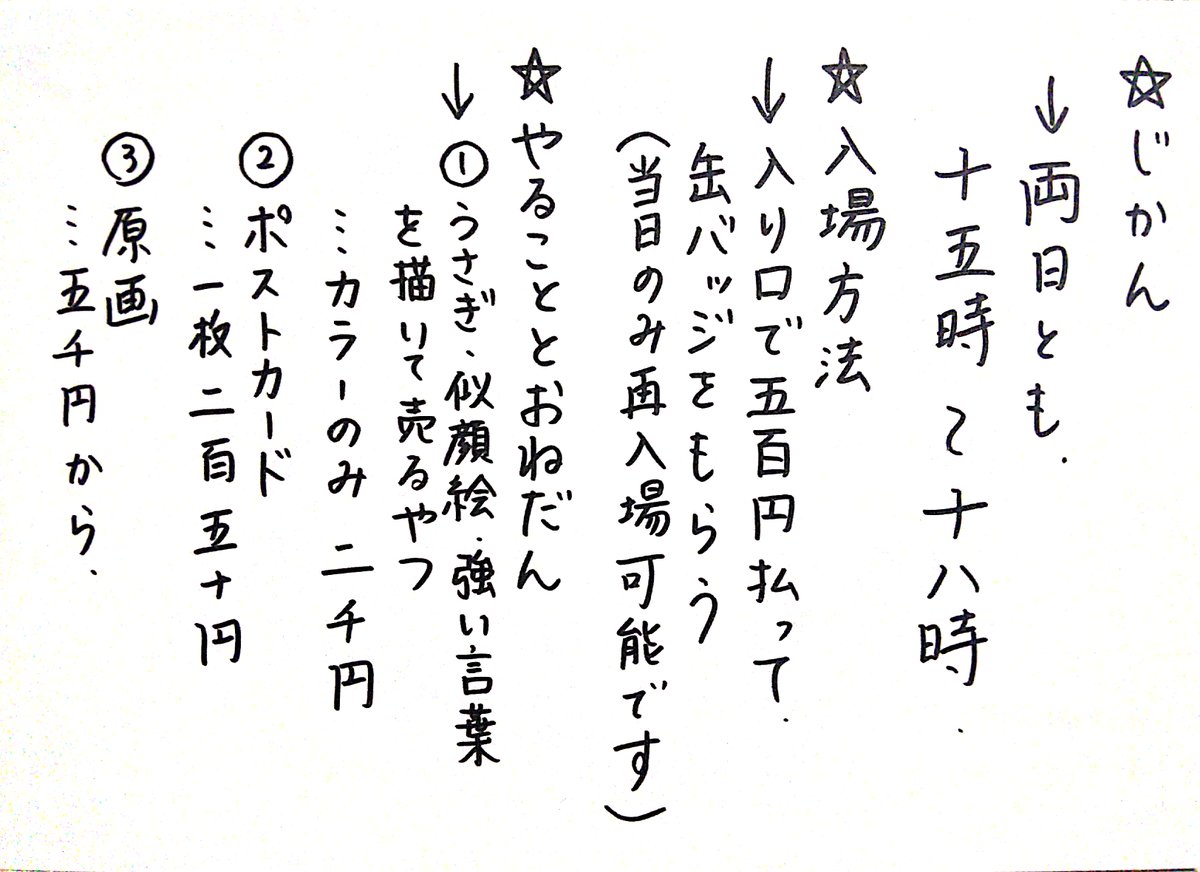 ☆じかん
↓両日とも.
十五時〜十八時.
☆入場方法
↓入り口で五百円払って.
缶バッジをもらう
(当日のみ再入場可能です)
☆やることとおねだん
↓①うさぎ.似顔絵.強い言葉
を描いて売るやつ
…カラーのみ 二千円
②ポストカード
…一枚二百五十円
③原画
…五千円から.